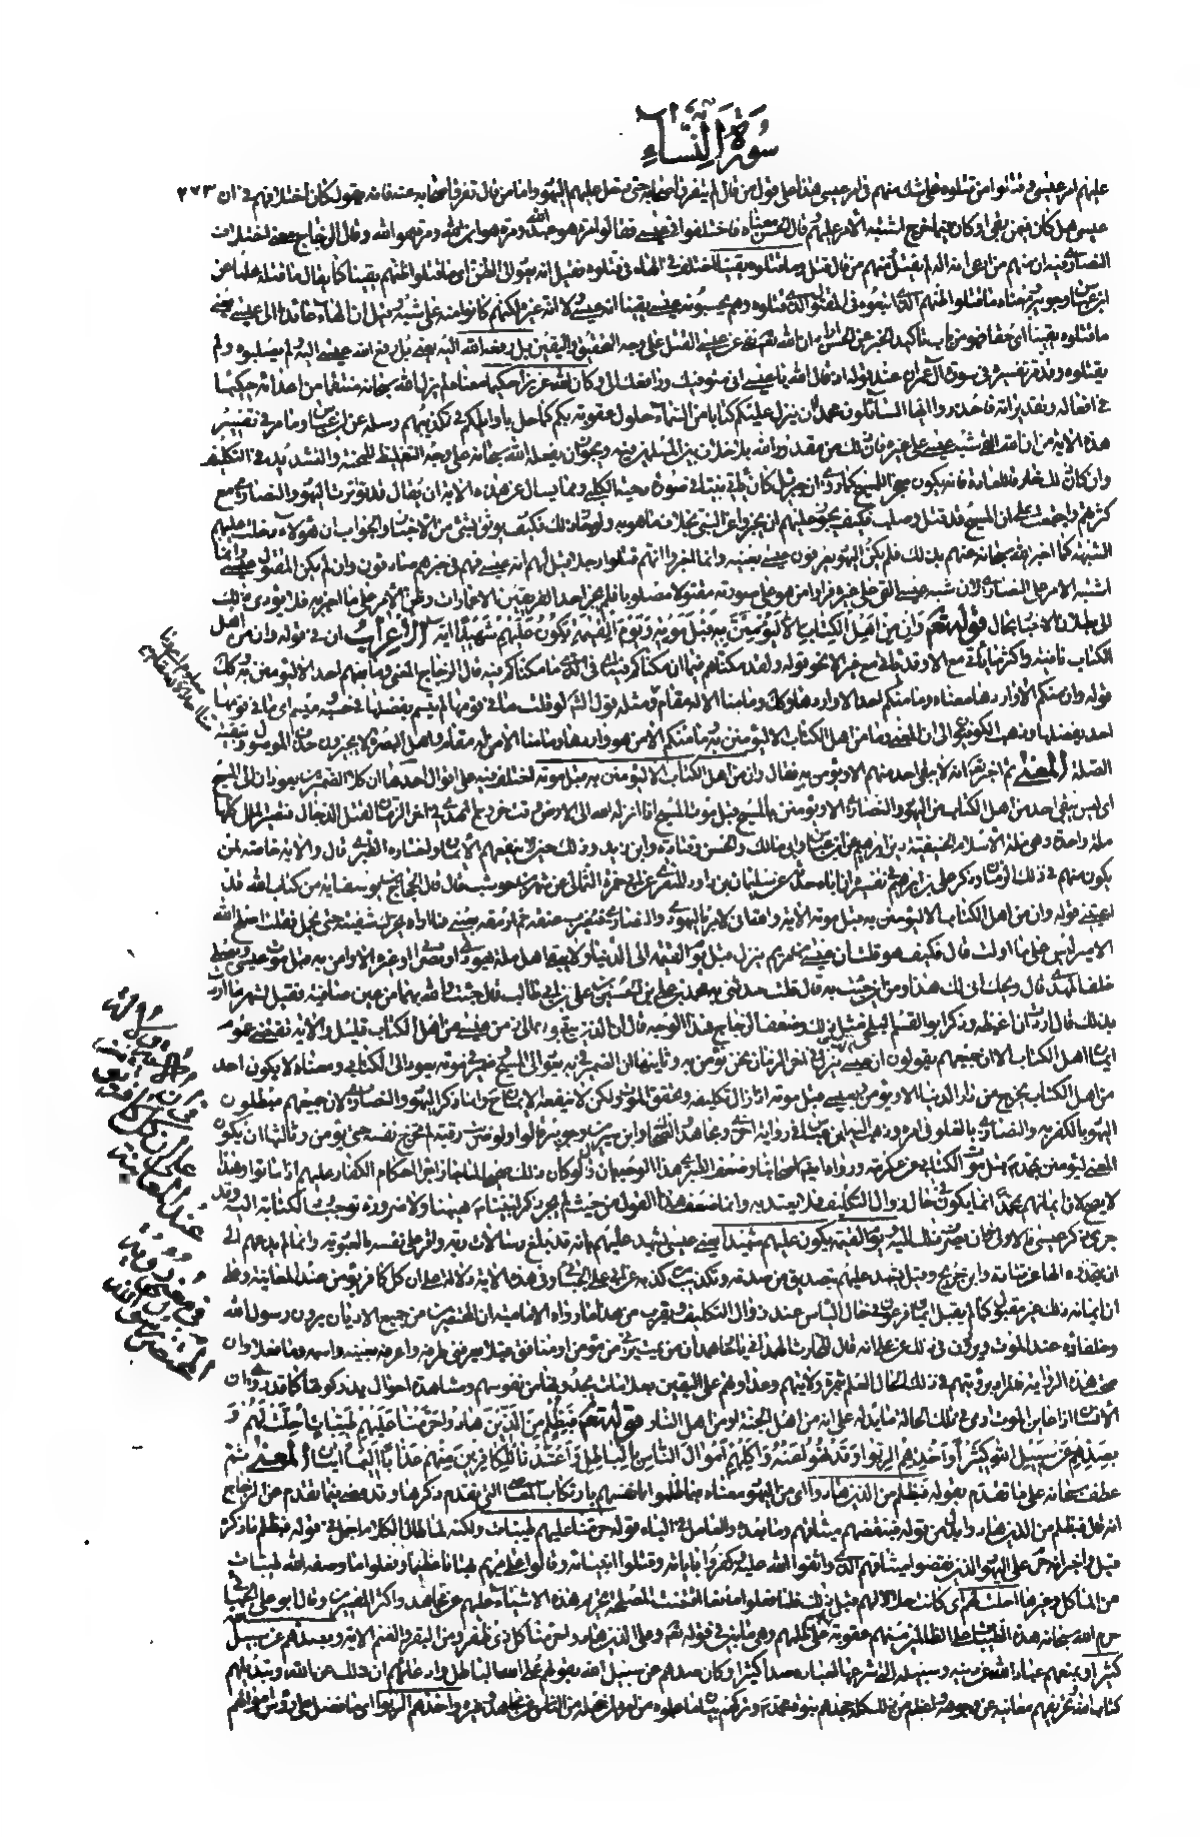 سُورَةُ النِّسَاءِ
٢٢٣
عليهم امر عيسى وقد كانوا من قتلوه على شك منهم في امر عيسى هذا على قول من قال لم يتفرق اصحابه حتى دخل عليهم اليهود واما من قال تفرق اصحابه عنه فانه يقول كان اختلافهم في ان
عيسى هل كان فيمن بقي او كان فيما خرج اشتبه الامر عليهم قال الحسن معناه فاختلفوا في عيسى فقالوا مرة هو عبد الله ومرة هو ابن الله ومرة هو الله وقال الزجاج معنى اختلاف
النصارى فيه ان منهم من ادعى انه اله لم يقتل ومنهم من قال قتل وما قتلوه يقينا اختلف في الهاء في قتلوه فقيل انه يعود الى الظن اي ما قتلوا ظنهم يقينا كما يقال ما قتله علما عن
ابن عباس وجويبر ومعناه ما قتلوا ظنهم الذي اتبعوه في المقتول الذي قتلوه وهم يحسبونه عيسى يقينا انه عيسى ولا انه غيره لكنهم كانوا منه على شبهة وقيل ان الهاء عائد الى عيسى يعني
ما قتلوه يقينا اي حقا فهو من باب تاكيد الخبر عن الحسن اراد ان الله تعالى نفى عن عيسى القتل على وجه التحقيق واليقين بل رفعه الله اليه يعني بل رفع الله عيسى اليه ولم يصلبوه ولم
يقتلوه وقد مر تفسيره في سورة آل عمران عند قوله اذ قال الله يا عيسى اني متوفيك ورافعك الي وكان الله عزيزا حكيما معناه لم يزل الله سبحانه منتقما من اعدائه حكيما
في افعاله وتقديراته فاحذروا ايها السائلون محمدا ان ينزل عليكم كتابا من السماء حلول عقوبة بكم كما حل باوائلكم في تكذيبهم رسله عن ابن عباس وما مر في تفسير
هذه الآية من ان الله القى شبه عيسى على غيره فان ذلك من مقدور الله بلا خلاف بين المسلمين فيه ويجوز ان يفعله الله سبحانه على وجه التغليظ للمحنة والتشديد في التكليف
وان كان ذلك خارقا للعادة فانه يكون معجزا للمسيح كما روي ان جبرئيل كان ياتي نبينا في صورة دحية الكلبي ومما يسال عن هذه الآية ان يقال قد تواترت اليهود والنصارى مع
كثرتهم واجمعت على ان المسيح قد قتل وصلب فكيف يجوز عليهم ان يخبروا عن الشيء بخلاف ما هو به ولو جاز ذلك فكيف يوثق بشيء من الاخبار والجواب ان هؤلاء دخلت عليهم
الشبهة كما اخبر الله سبحانه عنهم بذلك فلم يكن اليهود يعرفون عيسى بعينه وانما اخبروا انهم قتلوا رجلا قيل لهم انه عيسى فهم في خبرهم صادقون وان لم يكن المقتول عيسى وانما
اشتبه الامر على النصارى لان شبه عيسى القي على غيره فراوا من هو على صورته مقتولا مصلوبا فلم يخبر احد الفريقين الا عما رآه وظن الامر على ما اخبر به فلا يؤدي ذلك
الى بطلان الاخبار بحال قوله تعالى وَاِنْ مِنْ اَهْلِ الْكِتَابِ اِلَّا لَيُؤْمِنَنَّ بِهِ قَبْلَ مَوْتِهِ وَيَوْمَ الْقِيٰمَةِ يَكُونُ عَلَيْهِمْ شَهِيدًا آية الاعراب ان في قوله وان من اهل
الكتاب نافية واكثر ما ياتي مع الا وقد ياتي من غير الا نحو قوله ولقد مكناهم فيما ان مكناكم فيه اي في الذي ما مكناكم فيه قال الزجاج المعنى وما منهم احد الا ليؤمنن به وكذلك
قوله وان منكم الا واردها معناه وما منكم احد الا واردها وكذلك وما منا الا له مقام ومثله قول الشاعر لو قلت ما في قومها لم تيثم يفضلها في حسب وميسم اي ما في قومها
احد يفضلها وذهب الكوفيون الى ان المعنى وما من اهل الكتاب الا ليؤمنن به وما منكم الا من هو واردها وما منا الا من له مقام واهل البصرة لا يجيزون حذف الموصول وتبقية
الصلة المعنى ثم اخبر تعالى انه لا يبقى احد منهم الا ويؤمن به فقال وان من اهل الكتاب الا ليؤمنن به قبل موته اختلف فيه على اقوال احدها ان كلا الضميرين يعودان الى المسيح
اي ليس يبقى احد من اهل الكتاب من اليهود والنصارى الا ويؤمنن بالمسيح قبل موت المسيح اذا انزله الله الى الارض وقت خروج المهدي في آخر الزمان لقتل الدجال فتصير الملل كلها
ملة واحدة وهي ملة الاسلام الحنيفية دين ابرهيم عن ابن عباس وابي مالك والحسن وقتادة وابن زيد وذلك حين لا ينفعهم الايمان واختاره الطبري قال والآية خاصة لمن
يكون منهم في ذلك الزمان وذكر علي بن ابرهيم في تفسيره ان اباه حدثه عن سليمان بن داود المنقري عن ابي حمزة الثمالي عن شهر بن حوشب قال قال الحجاج بن يوسف آية من كتاب الله قد
اعيتني قوله وان من اهل الكتاب الا ليؤمنن به قبل موته الآية والله اني لآمر باليهودي والنصراني فيضرب عنقه ثم ارمقه بعيني فما اراه يحرك شفتيه حتى يخمد فقلت اصلح الله
الامير ليس على ما اولت قال فكيف هو قلت ان عيسى بن مريم ينزل قبل يوم القيمة الى الدنيا ولا يبقى اهل ملة يهودي او نصراني او غيره الا وآمن به قبل موت عيسى ويصلي
خلف المهدي قال ويحك انى لك هذا ومن اين جئت به قال قلت حدثني به محمد بن علي بن الحسين بن علي بن ابي طالب قال جئت والله بها من عين صافية فقيل لشهر ما اردت
بذلك قال اردت ان اغيظه وذكر ابو القسم البلخي مثل ذلك وضعف الزجاج هذا الوجه قال ان الذين يبقون الى زمن عيسى من اهل الكتاب قليل والآية تقتضي عموم
ايمان اهل الكتاب الا ان جميعهم يقولون ان عيسى الذي ينزل في آخر الزمان نحن نؤمن به وثانيها ان الضمير في به يعود الى المسيح والضمير في موته يعود الى الكتابي ومعناه لا يكون احد
من اهل الكتاب يخرج من دار الدنيا الا ويؤمن بعيسى قبل موته اذا زال تكليفه وتحقق الموت ولكن لا ينفعه الايمان حينئذ وانما ذكر اليهود والنصارى لان جميعهم مبطلون
اليهود بالكفر به والنصارى بالغلو في امره وذهب اليه ابن عباس في رواية اخرى ومجاهد والضحاك وابن سيرين وجويبر قالوا ولو ضربت رقبته لم تخرج نفسه حتى يؤمن وثالثها ان يكون
المعنى ليؤمنن بمحمد قبل موت الكتابي عن عكرمة ورواه ايضا اصحابنا وضعف الطبري هذا الوجه بان قال لو كان ذلك صحيحا لما جاز اجراء احكام الكفار عليهم اذا ماتوا وهذا
لا يصح لان ايمانهم بمحمد انما يكون في حال زوال التكليف فلا يعتد به وانما ضعف هذا القول من حيث لم يجر ذكر لنبينا ههنا ولا ضرورة توجب رد الكناية اليه وقد
جرى ذكر عيسى فالاولى ان يصرف ذلك اليه ويوم القيمة يكون عليهم شهيدا يعني عيسى يشهد عليهم بانه قد بلغ رسالات ربه واقر على نفسه بالعبودية وانه لم يدعهم الى
ان يتخذوه الها عن قتادة وابن جريج وقيل يشهد عليهم بتصديق من صدقه وتكذيب من كذبه عن ابي علي الجبائي وفي هذه الآية دلالة على ان كل كافر يؤمن عند المعاينة وعلى
ان ايمانه ذلك غير مقبول كما لم يقبل ايمان فرعون في حال الياس عند زوال التكليف ويقرب من هذا ما رواه الامامية ان المحتضرين من جميع الاديان يرون رسول الله
وخلفاءه عند الموت ويروون في ذلك عن علي انه قال للحارث الهمداني يا حار همدان من يمت يرني من مؤمن او منافق قبلا يعرفني طرفه واعرفه بعينه واسمه وما فعلا وان
صحت هذه الرواية فالمراد برؤيتهم في تلك الحال العلم بثمرة ولايتهم وعداوتهم على اليقين بعلامات يجدونها من نفوسهم ومشاهدة احوال يدركونها كما قد روي ان
الانسان اذا عاين الموت اري في تلك الحالة ما يدله على انه من اهل الجنة او من اهل النار قوله تعالى فَبِظُلْمٍ مِنَ الَّذِينَ هَادُوا حَرَّمْنَا عَلَيْهِمْ طَيِّبَاتٍ اُحِلَّتْ لَهُمْ وَ
بِصَدِّهِمْ عَنْ سَبِيلِ اللهِ كَثِيرًا وَاَخْذِهِمُ الرِّبٰوا وَقَدْ نُهُوا عَنْهُ وَاَكْلِهِمْ اَمْوَالَ النَّاسِ بِالْبَاطِلِ وَاَعْتَدْنَا لِلْكَافِرِينَ مِنْهُمْ عَذَابًا اَلِيمًا آيتان المعنى ثم
عطف سبحانه على ما تقدم بقوله فبظلم من الذين هادوا اي من اليهود معناه بما ظلموا انفسهم بارتكاب المعاصي التي تقدم ذكرها وقد مضى فيما تقدم عن الزجاج
انه قال فبظلم من الذين هادوا بدل من قوله فبما نقضهم ميثاقهم وما بعده والعامل في الباء قوله حرمنا عليهم طيبات ولكنه لما طال الكلام اجمل في قوله فبظلم ما ذكره
قبل واخبر انه حرم على اليهود الذين نقضوا ميثاقهم الذي واثقوا الله عليه وكفروا بآياته وقتلوا انبيائه وقالوا على مريم بهتانا عظيما وفعلوا ما وصفه الله طيبات
من المآكل وغيرها احلت لهم اي كانت حلالا لهم قبل ذلك فلما فعلوا ما فعلوا اقتضت المصلحة تحريم هذه الاشياء عليهم عن مجاهد واكثر المفسرين وقال ابو علي الجبائي
حرم الله سبحانه هذه الطيبات على الظالمين منهم عقوبة لهم على ظلمهم وهي ما بين في قوله تعالى وعلى الذين هادوا حرمنا كل ذي ظفر ومن البقر والغنم الآية وبصدهم عن سبيل الله
كثيرا وبمنعهم عباد الله عن دينه وسبيله التي شرعها لعباده صدا كثيرا وكان صدهم عن سبيل الله بقولهم على الله الباطل وادعائهم ان ذلك عن الله وتبديلهم
كتاب الله وتحريفهم معانيه عن وجوهه واعظم من ذلك كله جحدهم نبوة محمد وتركهم بيان ما علموه من امره لمن جهله من الناس عن مجاهد وغيره واخذهم الربوا اي ما فضل على رؤوس اموالهم